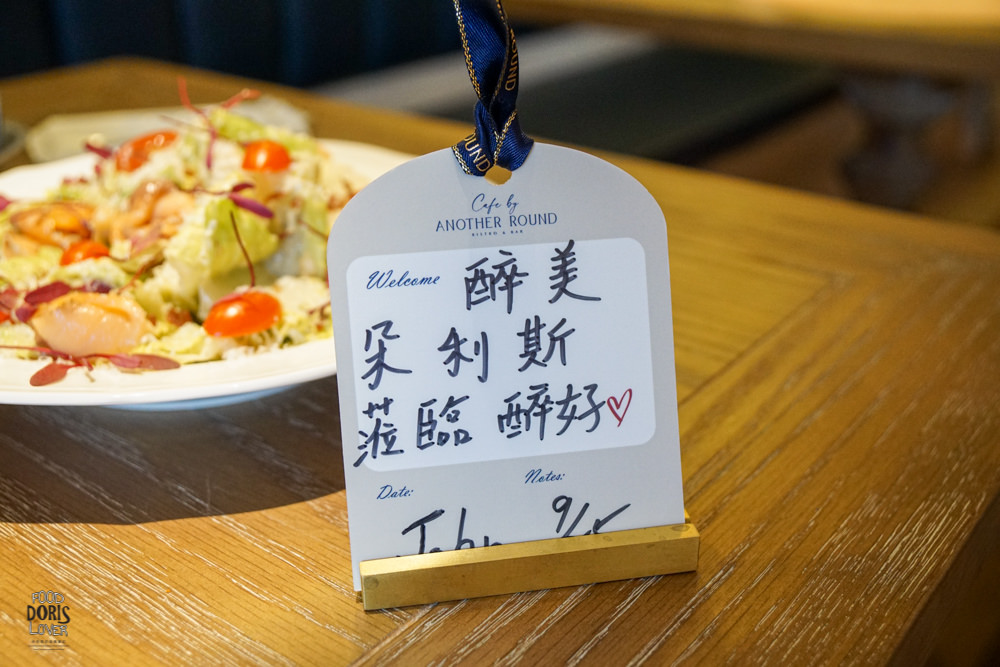 ROUND
ROUND
Cafe by
ANOTHER ROUND
BISTRO & BAR
Welcome 醉美
朵利斯
蒞臨醉好
Date: Notes:
John 9/5
FOOD
DORIS
LOVER